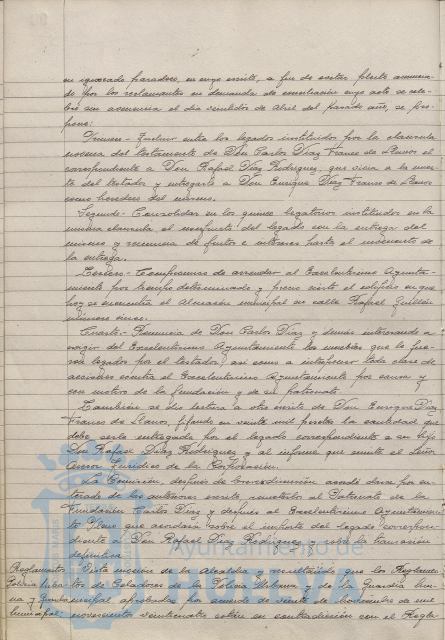 en ignorado paradero, en cuyo escrito, a fin de evitar pleito anuncia-
do por los reclamantes en demanda de conciliación cuyo acto se cele-
bró sin avenencia el día veintidos de Abril del pasado año, se pro-
pone:
Primero- Excluir entre los legados instituidos por la clausula
novena del testamento de Don Carlos Díaz Franco de Llanos el
correspondiente a Don Rafael Díaz Rodriguez, que vivia a la muer-
te del testador y entregarlo a Don Enrique Díaz Franco de Llanos
como heredero del mismo.
Segundo- Consolidar en los quince legatarios instituidos en la
misma clausula el usufructo del legado con la entrega del
mismo y renuncia de frutos e intereses hasta el momento de
la entrega.
Tercero- Compromiso de arrendar al Excelentísimo Ayunta-
miento por tiempo determinado y precio cierto el edificio en que
hoy se encuentra el Almacén municipal en calle Rafael Guillén
número once.
Cuarto- Renuncia de Don Carlos Díaz y demás interesados a
exigir del Excelentísimo Ayuntamiento los muebles que le fue-
ron legados por el testador, así como a interponer toda clase de
acciones contra el Excelentísimo Ayuntamiento por causa y
con motivo de la fundación y de su patronato.
También se dio lectura a otro escrito de Don Enrique Díaz
Franco de Llanos, fijando en veinte mil pesetas la cantidad que
debe serle entregada por el legado correspondiente a su hijo
Don Rafael Díaz Rodriguez y al informe que emite el Señor
Asesor Jurídico de la Corporación.
La Comisión, después de breve discusión acordó darse por en-
terada de los anteriores escritos, someterlos al Patronato de la
Fundación Carlos Díaz y después al Excelentísimo Ayuntamien-
to Pleno que acordará sobre el importe del legado correspon-
diente a Don Rafael Díaz Rodriguez y sobre la transación
definitiva.
Reglamentos Vista moción de la Alcaldía manifestando que los Reglamen-
Policía Urbana tos de Celadores de la Policía Urbana y de la Guardia Urba-
y Guardia na municipal aprobados por acuerdo de veinte de Noviembre de mil
municipal novecientos veinticuatro están en contradicción con el Regla-
Ayuntamiento de
HUELVA